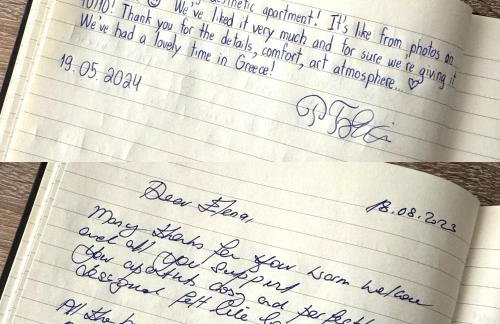 aesthetic apartment! It's like from photos on
10/10! We've liked it very much and for sure we're giving it
Thank you for the details, comfort, art atmosphere... ♡
We've had a lovely time in Greece!
19.05.2024
Dear Elena,
18.08.2023
Many thanks for your warm welcome
and all your support
Your apartment and perfectly
designed felt like
All the b